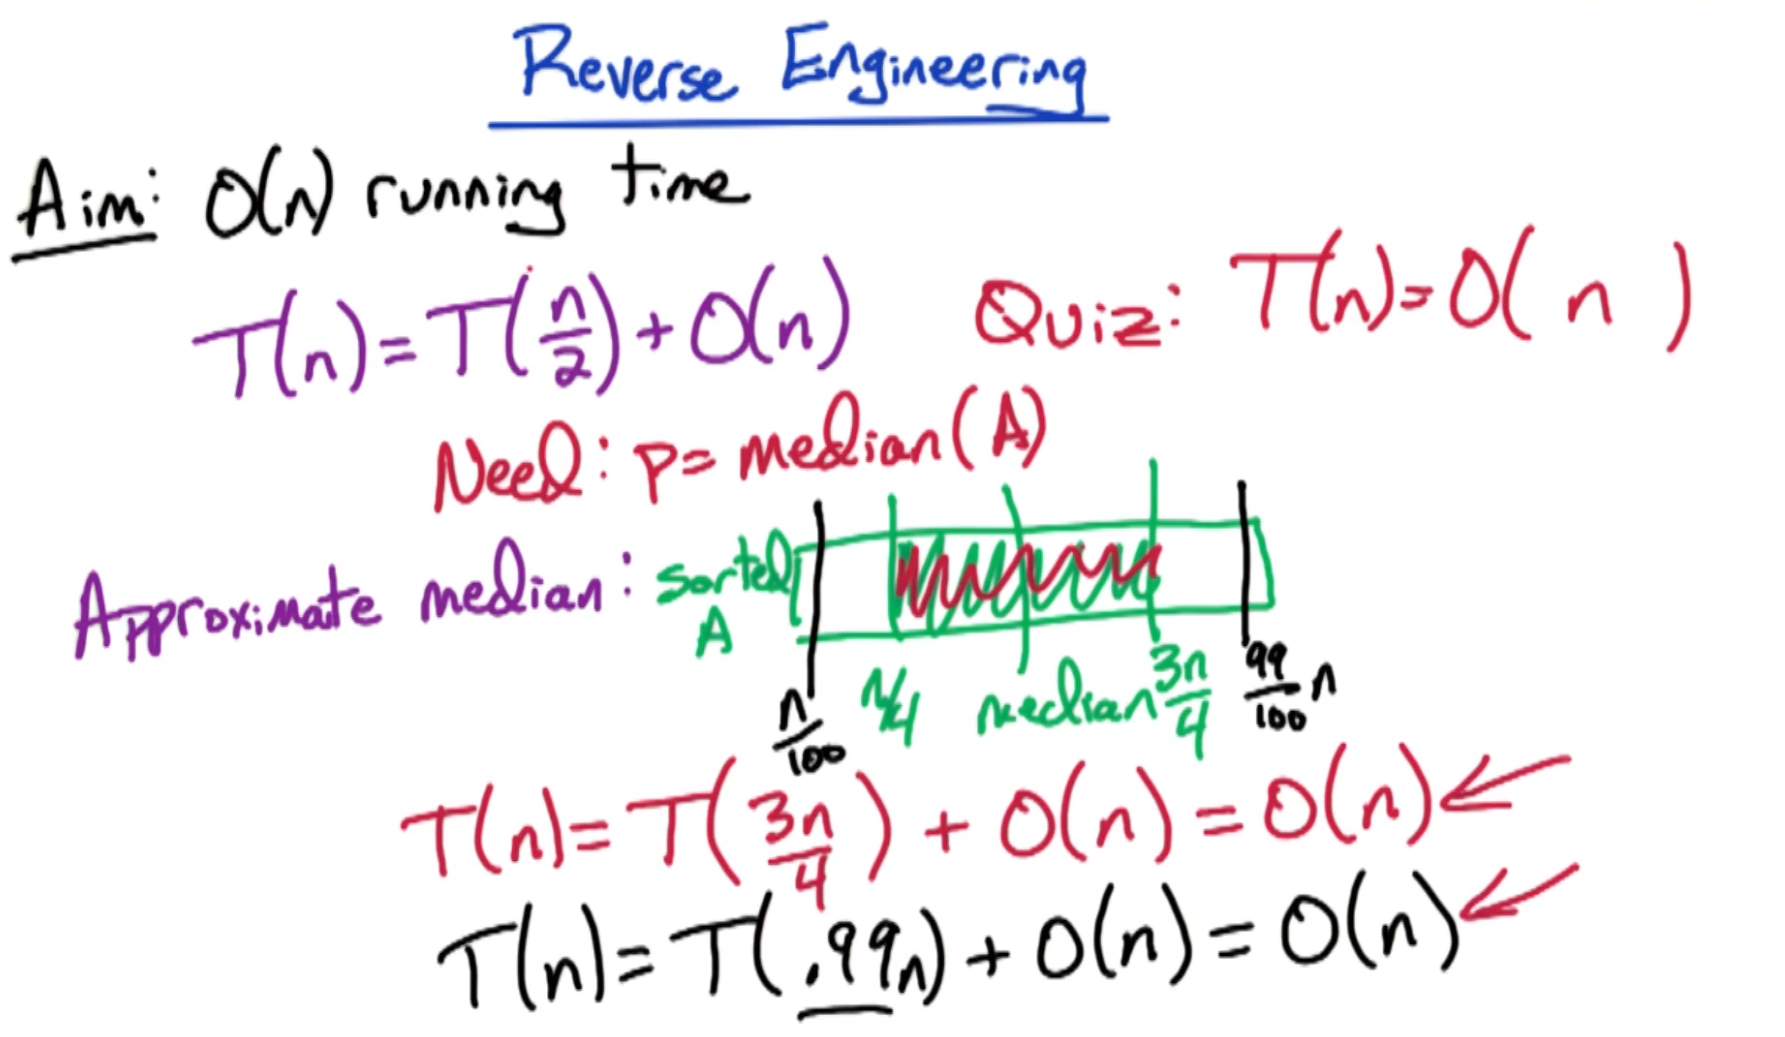 Reverse Engineering
Aim: O(n) running time
T(n) = T(n/2) + O(n)
Quiz: T(n) = O( n )
Need: p = median(A)
Approximate median: sorted A
n/100 n/4 median 3n/4 99/100 n
T(n) = T(3n/4) + O(n) = O(n)
T(n) = T(.99n) + O(n) = O(n)